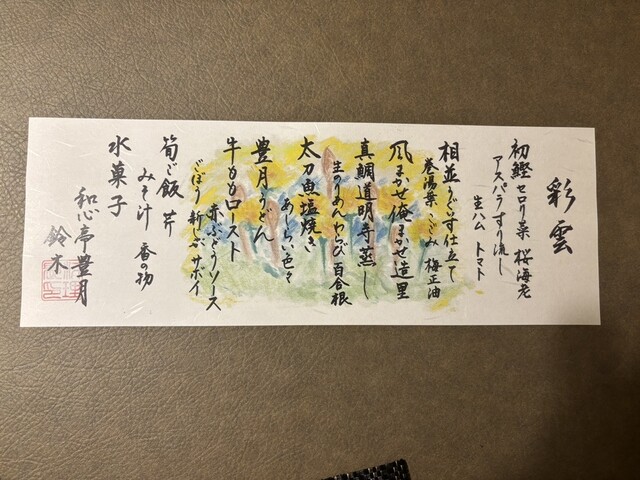 彩雲
初鰹 セロリ菜 桜海老
アスパラすり流し
生ハム トマト
相並うぐいす仕立て
巻湯葉 こごみ 梅正油
風まかせ俺まかせ造里
真鯛道明寺蒸し
生のりあん わらび 百合根
太刀魚塩焼き
あしらい色々
豊月うどん
牛ももロースト
赤ぶどうソース
ごぼう 新じゃが サボイ
筍ご飯 芹
みそ汁 香の物
水菓子
和心亭豊月
鈴木